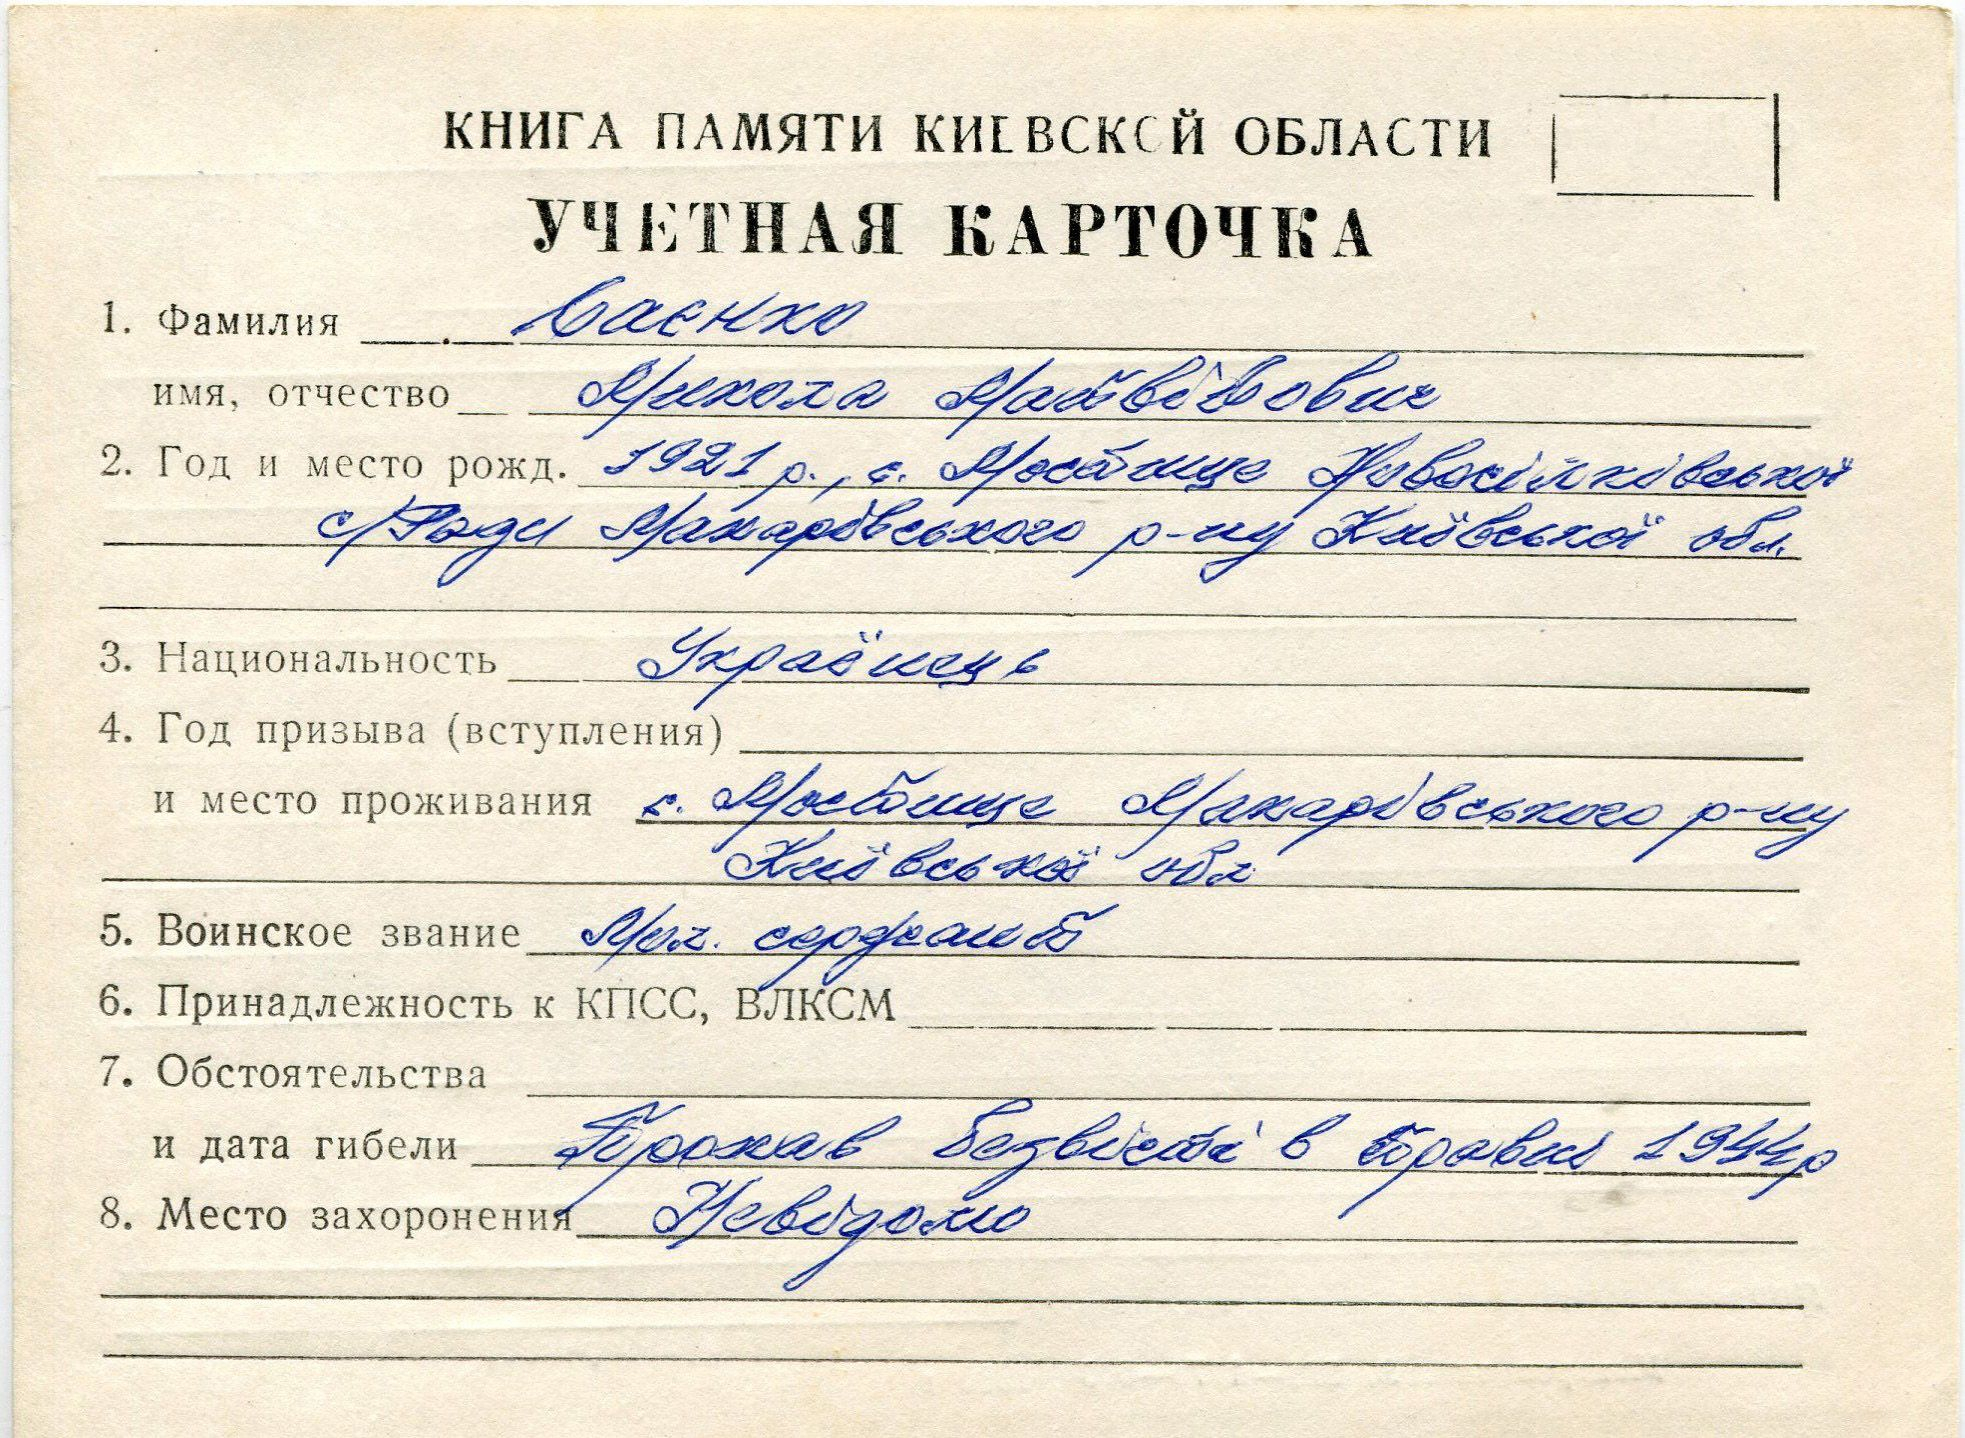 КНИГА ПАМЯТИ КИЕВСКОЙ ОБЛАСТИ
УЧЕТНАЯ КАРТОЧКА
1. Фамилия Саєнко
имя, отчество Микола Матвійович
2. Год и место рожд. 1921 р., с. Мостище Новосілківської
с/Ради Макарівського р-ну Київської обл.
3. Национальность Українець
4. Год призыва (вступления)
и место проживания с. Мостище Макарівського р-ну
Київської обл
5. Воинское звание Мол. сержант
6. Принадлежность к КПСС, ВЛКСМ
7. Обстоятельства
и дата гибели Пропав безвісті в травні 1944р
8. Место захоронения Невідомо